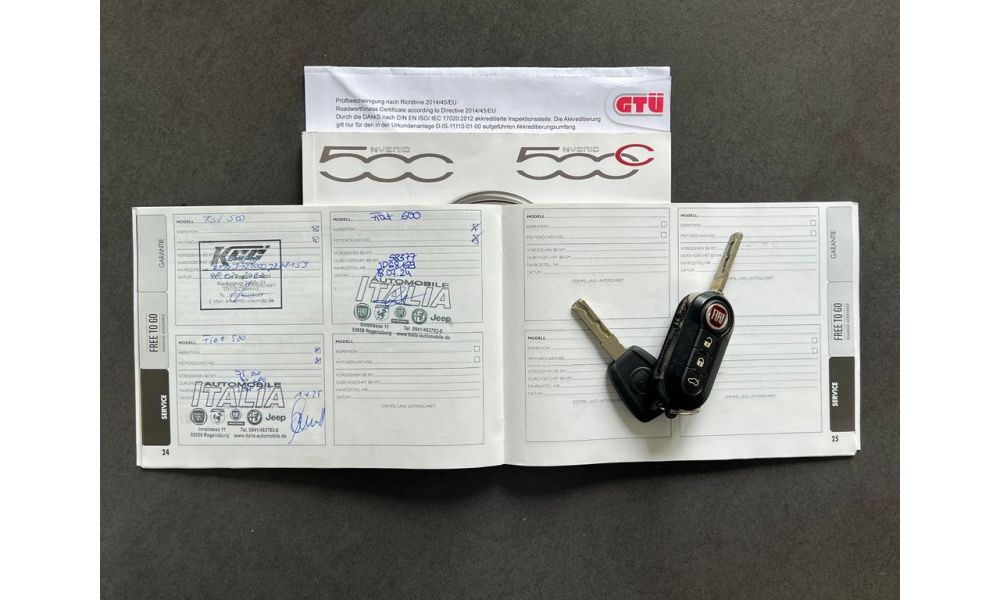 Prüfbescheinigung nach Richtlinie 2014/45/EU
Roadworthiness Certificate according to Directive 2014/45/EU
Durch die DAkkS nach DIN EN ISO/ IEC 17020:2012 akkreditierte Inspektionsstelle. Die Akkreditierung
gilt nur für den in der Urkundenanlage D-IS-11110-01-00 aufgeführten Akkreditierungsumfang.
GTÜ
500 HYBRID
500C HYBRID
GARANTIE
FREE TO GO
SERVICE
24
MODELL Fiat 500
INSPEKTION
MOTORÖLWECHSEL
KCC
MODELL Fiat 500
INSPEKTION
MOTORÖLWECHSEL
VORGESEHEN BEI KM
DURCHGEFÜHRT BEI KM
FAHRGESTELL-NR.
DATUM
AUTOMOBILE
ITALIA
Jeep
Innstrasse 11 Tel. 0941/463793-0
93059 Regensburg www.italia-automobile.de
MODELL Fiat 500
INSPEKTION
MOTORÖLWECHSEL
VORGESEHEN BEI KM
DURCHGEFÜHRT BEI KM
FAHRGESTELL-NR.
DATUM 1.4.25
AUTOMOBILE
ITALIA
Jeep
Innstrasse 11 Tel. 0941/463793-0
93059 Regensburg www.italia-automobile.de
MODELL
INSPEKTION
MOTORÖLWECHSEL
VORGESEHEN BEI KM
DURCHGEFÜHRT BEI KM
FAHRGESTELL-NR.
DATUM
STEMPEL UND UNTERSCHRIFT
MODELL
INSPEKTION
MOTORÖLWECHSEL
VORGESEHEN BEI KM
DURCHGEFÜHRT BEI KM
FAHRGESTELL-NR.
DATUM
STEMPEL UND UNTERSCHRIFT
MODELL
INSPEKTION
MOTORÖLWECHSEL
VORGESEHEN BEI KM
DATUM
MODELL
INSPEKTION
MOTORÖLWECHSEL
VORGESEHEN BEI KM
DURCHGEFÜHRT BEI KM
FAHRGESTELL-NR.
DATUM
STEMPEL UND UNTERSCHRIFT
STEMPEL UND UNTERSCHRIFT
FIAT
GARANTIE
FREE TO GO
SERVICE
25